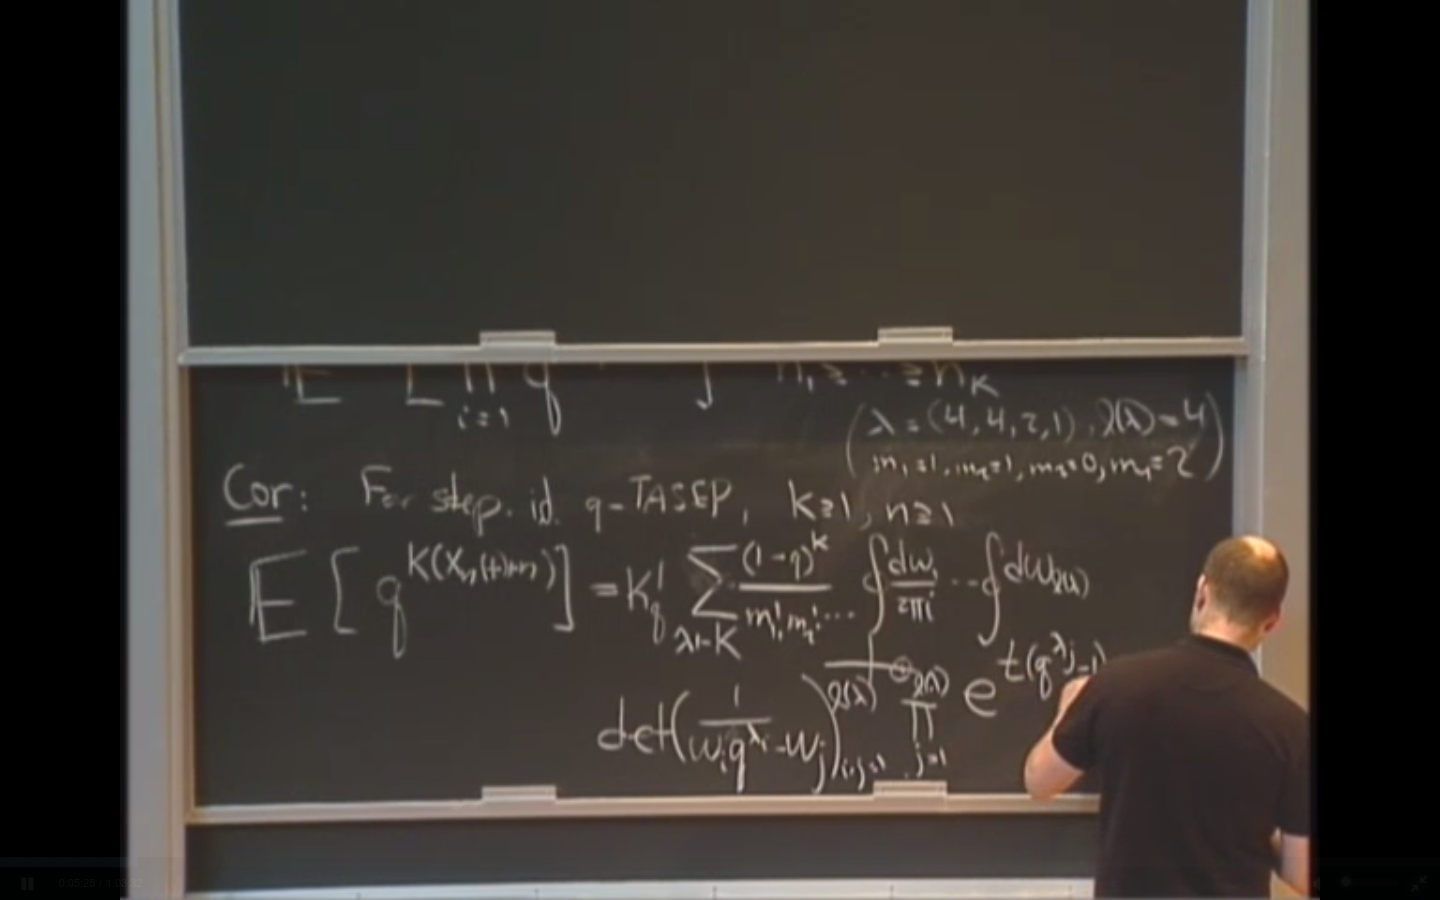 E [ ∏ i=1 q ] n₁ ≥ ... ≥ n_K
(λ = (4,4,2,1), l(λ) = 4
m₁=1, m₂=1, m₃=0, m₄=2)
Cor: For step. id. q-TASEP, K≥1, n≥1
E[q^{K(X_n(t)+n)}] = K_q! Σ_{λ⊢K} (1-q)^K / (m₁! m₂! ...) ∮ dw₁/2πi ... ∮ dw_{l(λ)}
det(1/(w_i q^{λ_i} - w_j))_{i,j=1}^{l(λ)} ∏_{j=1}^{l(λ)} e^{t(q^{λ_j}-1)